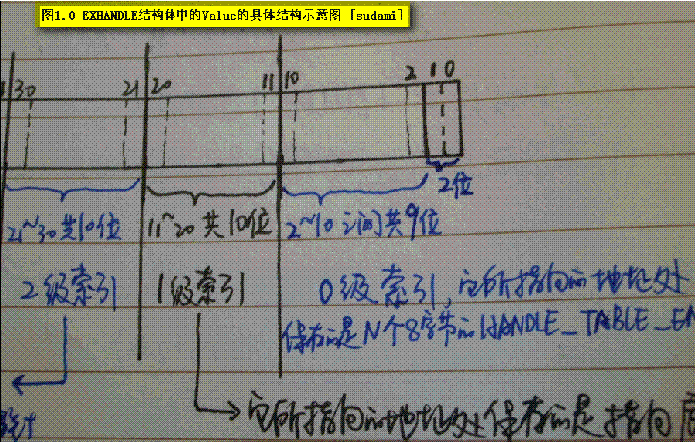 图1.0 EXHANDLE结构体中的Value的具体结构示意图 [sudami]
30 21 20 11 10 2 1 0
2位
21~30共10位 11~20共10位 2~10之间共9位
2级索引 1级索引 0级索引,它所指向的地址处
保存的是N个8字节的HANDLE_TABLE_EN
它所指向的地址处保存的是指向